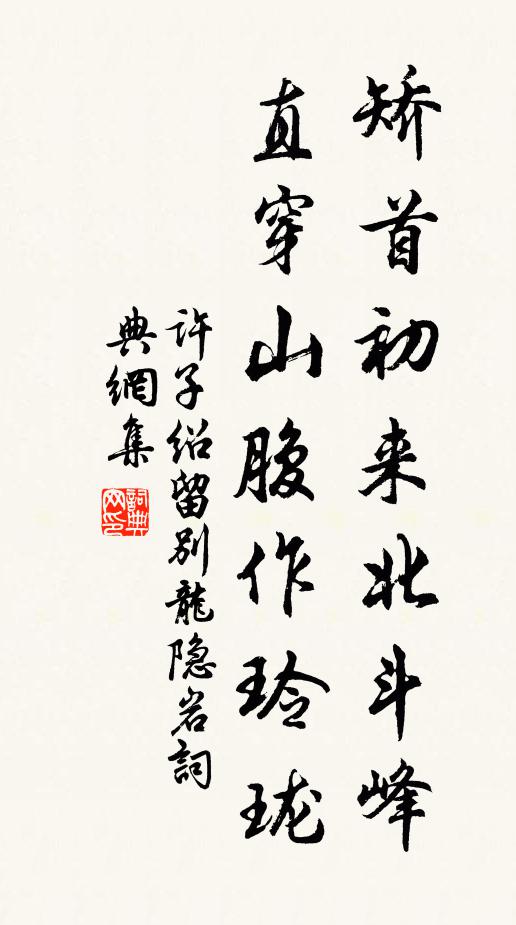 矫首初来北斗峰
直穿山腹作玲珑
许子绍留别龍隐岩詞
典網集
詞典网印